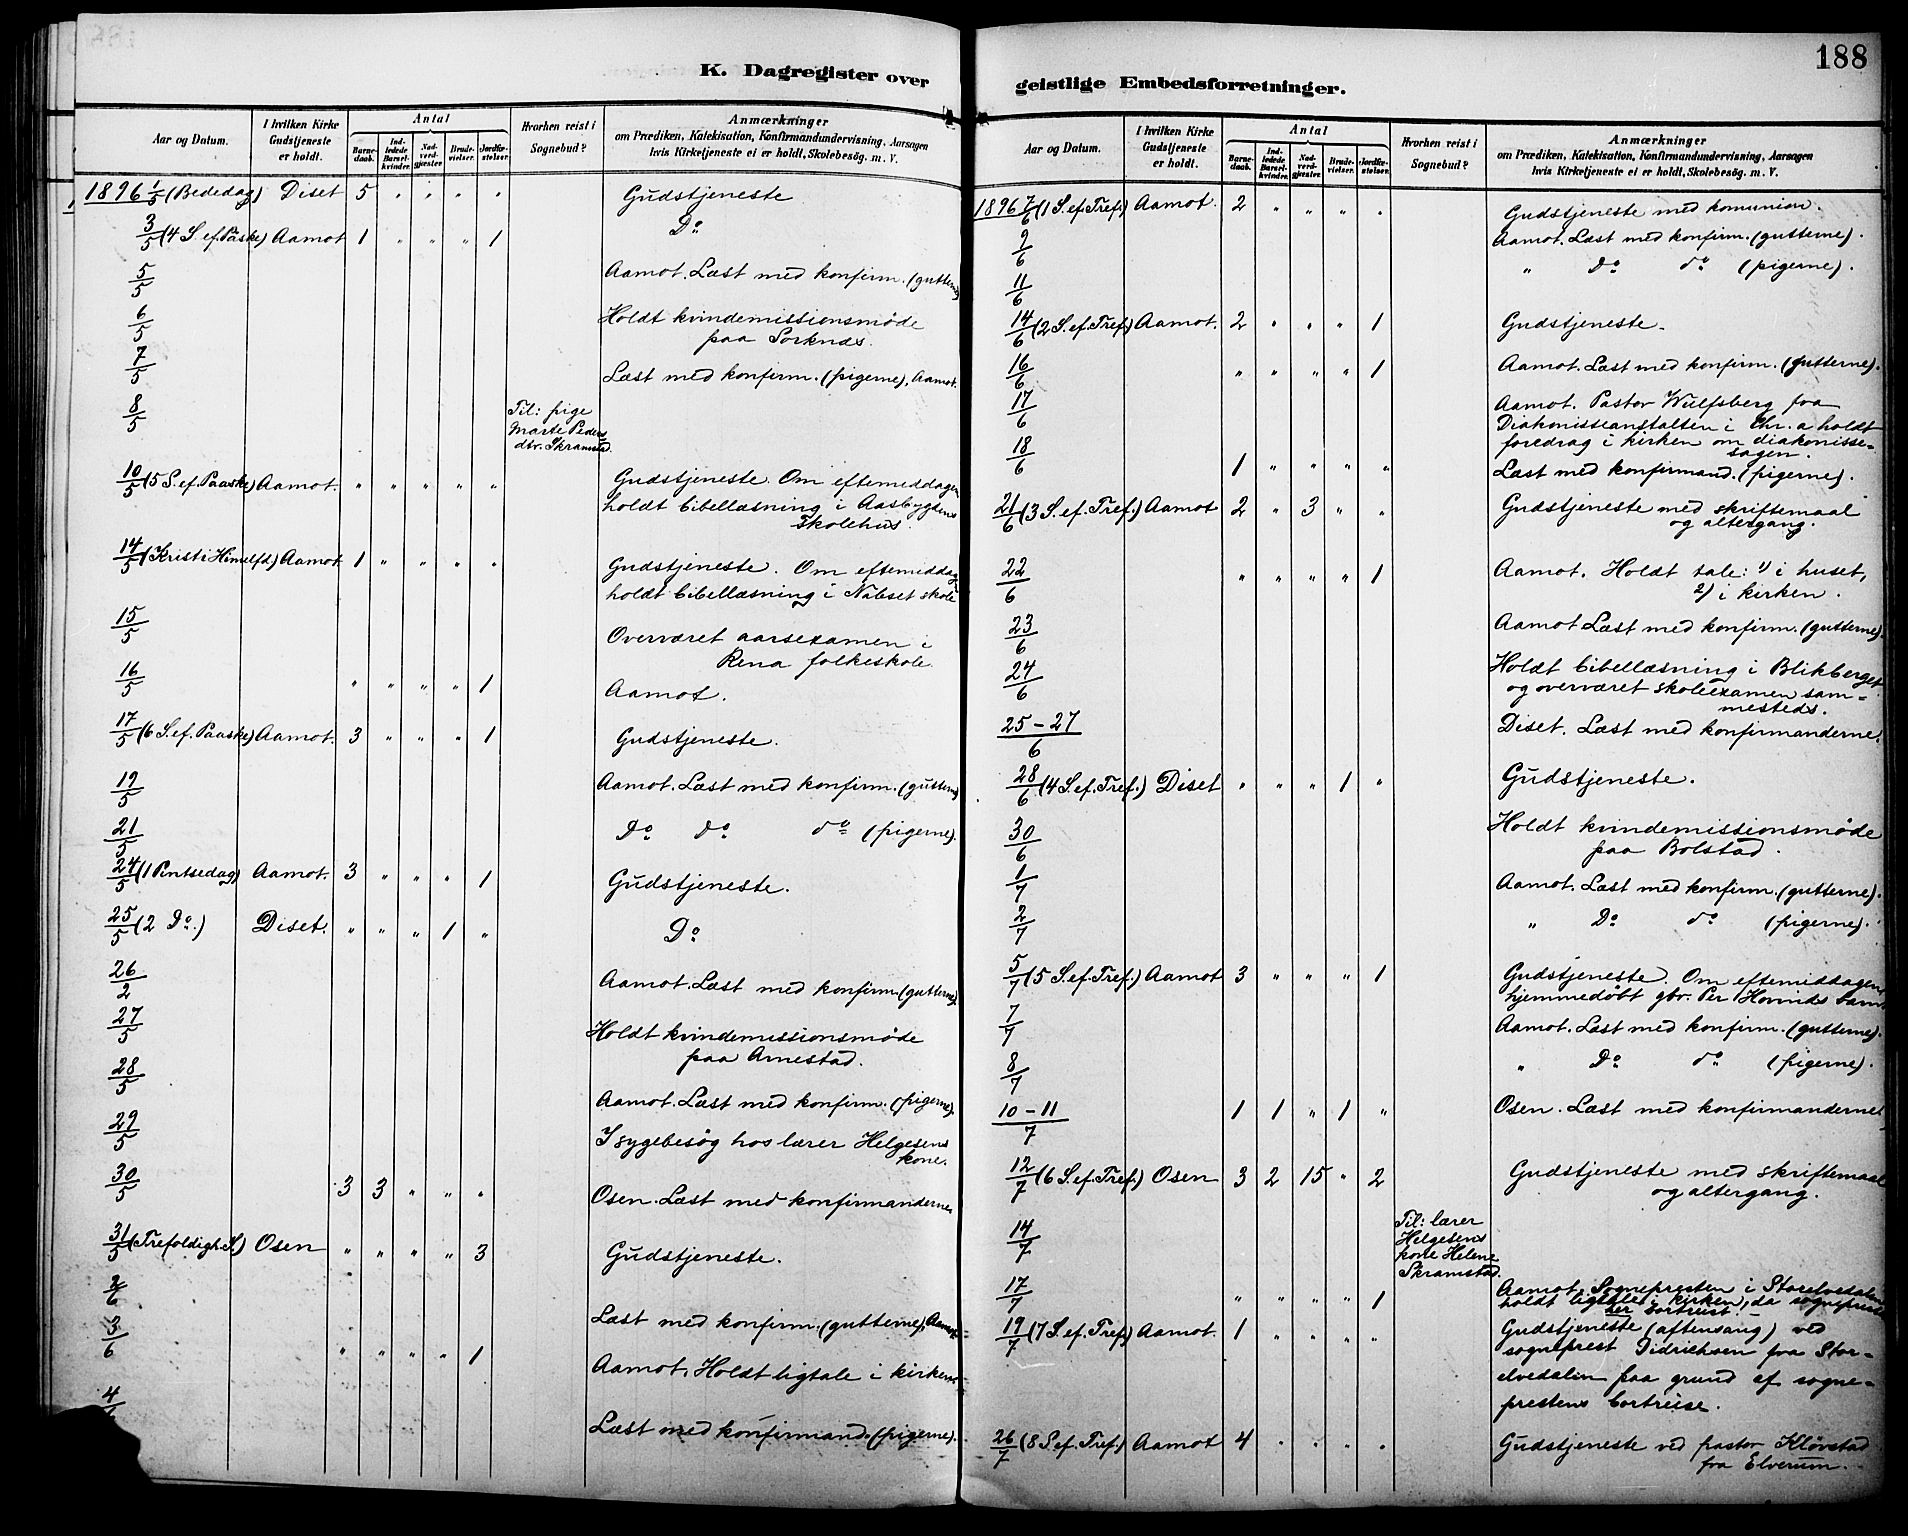 188
K. Dagregister over geistlige Embedsforretninger.
Aar og Datum. I hvilken Kirke Gudstjeneste er holdt. Antal Barnedaab. Indledede Barselkvinder. Nadverdgjester. Brudevielser. Jordfæstelser. Hvorhen reist i Sognebud? Anmærkninger om Prædiken, Katekisation, Konfirmandundervisning, Aarsagen hvis Kirketjeneste ei er holdt, Skolebesög. m. V.
1896 1/5 (Bededag) Diset 5 " " " " Gudstjeneste
3/5 (4 S. ef. Paaske) Aamot 1 " " " 1 Do
5/5 Aamot. Læst med konfirm. (gutterne)
6/5 Holdt kvindemissionsmöde
paa Sorknæs.
7/5 Læst med konfirm. (pigerne), Aamot.
8/5 Til: pige
Marte Peders
dtr. Skramstad.
10/5 (5 S. ef. Paaske) Aamot. " " " " " Gudstjeneste. Om eftemiddagen
holdt bibellæsning i Aasbygdens
skolehus.
14/5 (Kristi Himelfd) Aamot 1 " " " " Gudstjeneste. Om eftemiddag
holdt bibellæsning i Nabset skole
15/5 Overværet aarsexamen i
Rena folkeskole.
16/5 " " " " 1 Aamot.
17/5 (6 S. ef. Paaske) Aamot. 3 " " " 1 Gudstjeneste.
19/5 Aamot. Læst med konfirm. (gutterne)
21/5 Do do do (pigerne).
24/5 (1 Pintsedag) Aamot. 3 " " " 1 Gudstjeneste.
25/5 (2 Do.) Diset. " " " 1 " Do
26/2 Aamot. Læst med konfirm. (gutterne).
27/5 Holdt kvindemissionsmöde
paa Arnestad.
28/5 Aamot. Læst med konfirm. (pigerne).
29/5 I sygebesög hos lærer Helgesens
kone.
30/5 3 3 " " " Osen. Læst med konfirmanderne.
31/5 (Trefoldigh. S.) Osen " " " " 3 Gudstjeneste.
2/6 Læst med konfirm. (gutterne), Aamot.
3/6 " " " " 1 Aamot. Holdt ligtale i kirken
4 Læst med konfirmand. (pigerne).
Aar og Datum. I hvilken Kirke Gudstjeneste er holdt. Antal Barnedaab. Indledede Barselkvinder. Nadverdgjester. Brudevielser. Jordfæstelser. Hvorhen reist i Sognebud? Anmærkninger om Prædiken, Katekisation, Konfirmandundervisning, Aarsagen hvis Kirketjeneste ei er holdt, Skolebesög. m. V.
1896 7/6 (1 S. ef. Tref.) Aamot. 2 " " " " Gudstjeneste med komunion.
9/6 Aamot. Læst med konfirm. (gutterne).
11/6 " Do do (pigerne).
14/6 (2 S. ef. Tref.) Aamot. 2 " " " 1 Gudstjeneste.
16/6 " " " " 1 Aamot. Læst med konfirm. (gutterne).
17/6 Aamot. Pastor Wulfsberg fra
Diakonisseanstalten i Chr.a holdt
foredrag i kirken om diakonisse-
sagen.
18/6 1 " " " " Læst med konfirmand. (pigerne).
21/6 (3 S. ef. Tref.) Aamot 2 " 3 " " Gudstjeneste med skriftemaal
og altergang.
22/6 " " " " 1 Aamot. Holdt tale: 1) i huset,
2) i kirken.
23/6 Aamot Læst med konfirm. (gutterne).
24/6 Holdt bibellæsning i Blikberget
og overværet skoleexamen sam-
mesteds.
25-27/6 Diset. Læst med konfirmanderne.
28/6 (4 S. ef. Tref.) Diset " " " 1 " Gudstjeneste.
30/6 Holdt kvindemissionsmöde
paa Bolstad.
1/7 Aamot. Læst med konfirm. (gutterne).
2/7 " Do do (pigerne).
5/7 (5 S. ef. Tref.) Aamot 3 " " " 1 Gudstjeneste. Om eftemiddagen
hjemmedöbt gbr. Per Hovinds barn
7/7 Aamot. Læst med konfirm. (gutterne).
8/7 " Do do (pigerne).
10-11/7 1 1 " 1 " Osen. Læst med konfirmanderne
12/7 (6 S. ef. Tref.) Osen 3 2 15 " 2 Gudstjeneste med skriftemaal
og altergang.
14/7 Til: lærer
Helgesens
kone Helene
Skramstad.
17/7 " " " " 1 Aamot. Sognepresten i Storelvedalen
holdt ligtale i kirken, da sogneprest
er bortreist
19/7 (7 S. ef. Tref.) Aamot. 1 " " " " Gudstjeneste (aftensang) ved
sogneprest Didrichsen fra Stor-
elvedalen paa grund af sogne-
prestens bortreise.
26/7 (8 S. ef. Tref.) Aamot 4 " " " " Gudstjeneste ved pastor Klövstad
fra Elverum.